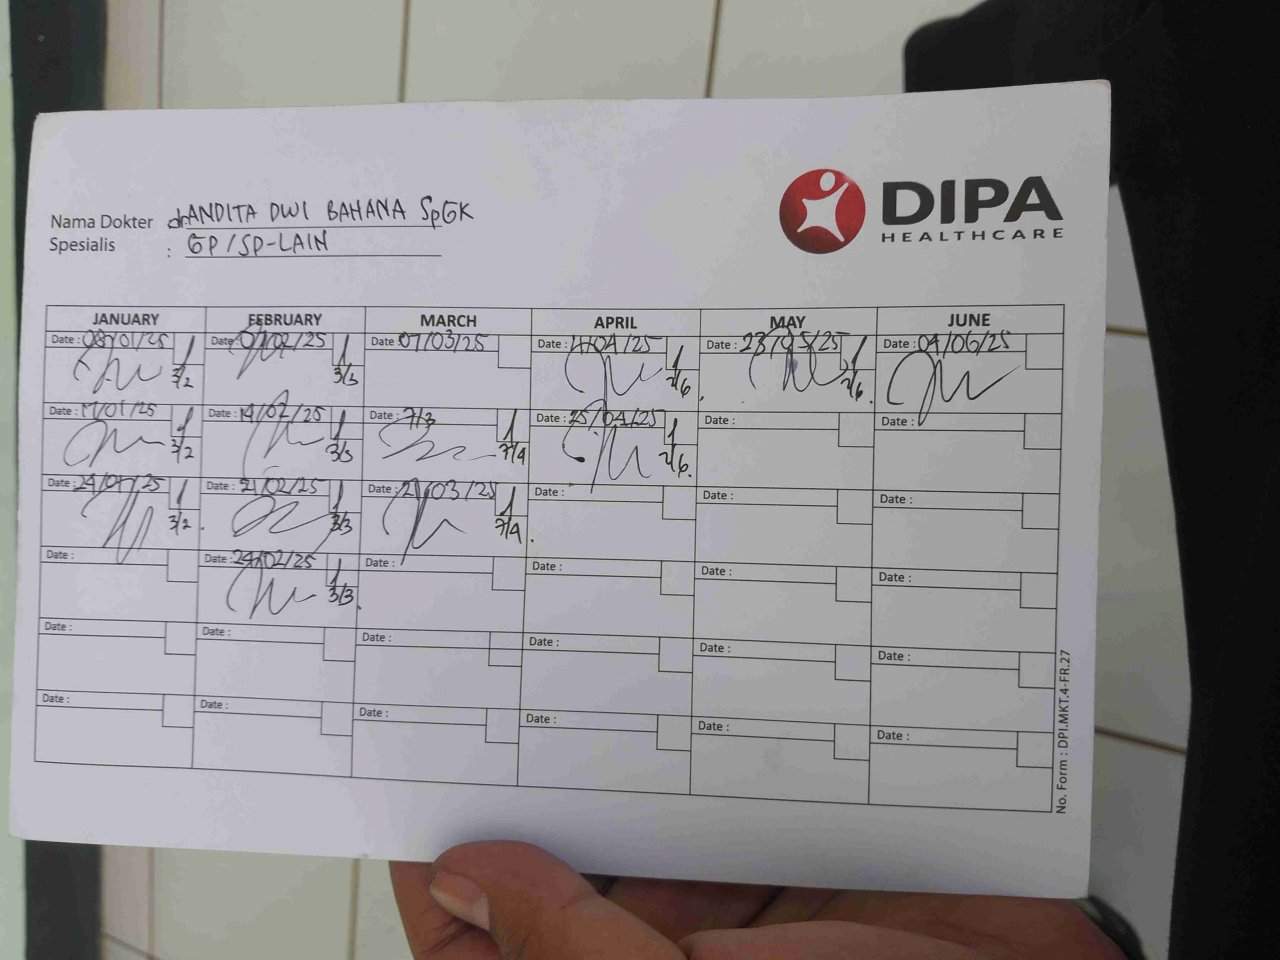 DIPA
HEALTHCARE
Nama Dokter dr. ANDITA DWI BAHANA SpGK
Spesialis : GP/SP-LAIN
JANUARY FEBRUARY MARCH APRIL MAY JUNE
Date : 08/01/25 Date : 07/02/25 Date : 07/03/25 Date : 11/04/25 Date : 23/05/25 Date : 04/06/25
3/2 3/3 2/6 2/6
Date : 17/01/25 Date : 14/02/25 Date : 7/3 Date : 25/04/25 Date : Date :
3/2 3/3 7/4 2/6
Date : 24/01/25 Date : 21/02/25 Date : 21/03/25 Date : Date : Date :
3/2 3/3 7/4
Date : Date : 24/02/25 Date : Date : Date : Date :
3/3
Date : Date : Date : Date : Date : Date :
Date : Date : Date : Date : Date : Date :
No. Form : DPI.MKT.4-FR.27